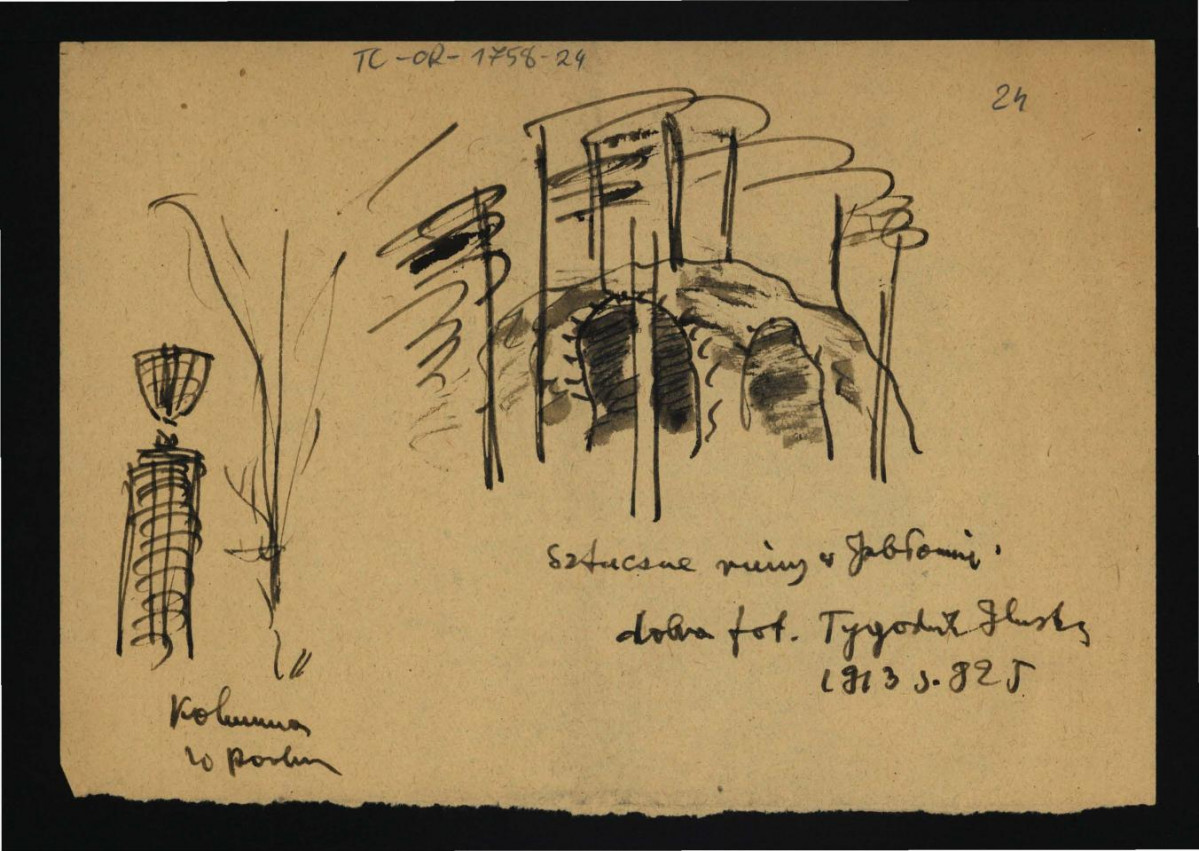 TC-OR-1758-24
24
Sztuczne ruiny w Jabłonnie.
dobra fot. Tygodnik Ilustr
1913 s. 825
Kolumna
w parku